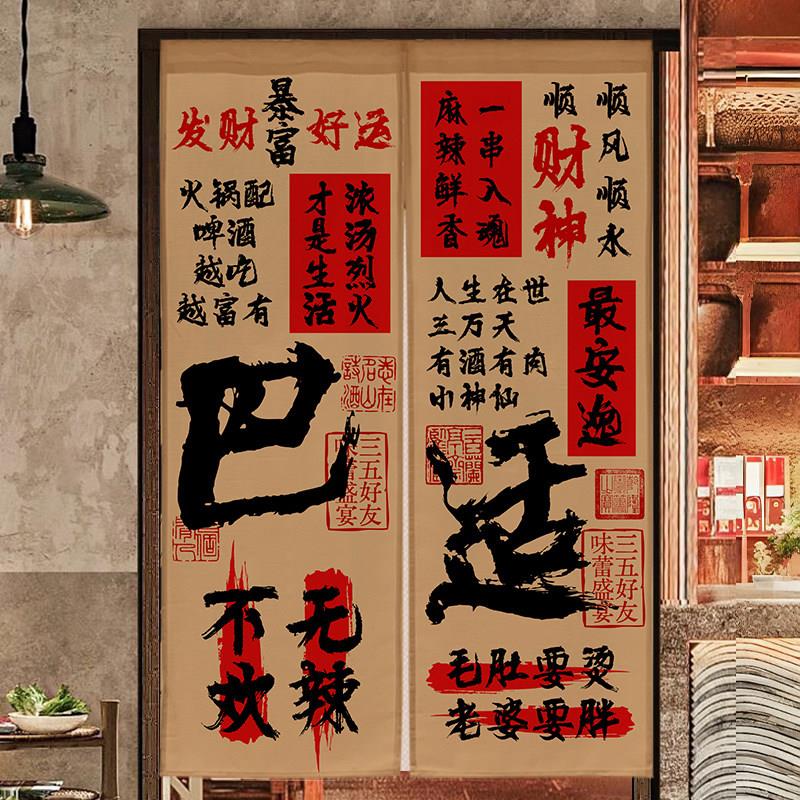 发财暴富好运
火锅配
啤酒
越吃
越富有
浓汤烈火
才是生活
巴
三五好友
味蕾盛宴
无辣
不欢
一串入魂
麻辣鲜香
顺风顺水
顺财神
人生在世
三万天
有酒有肉
小神仙
最安逸
适
三五好友
味蕾盛宴
毛肚要烫
老婆要胖